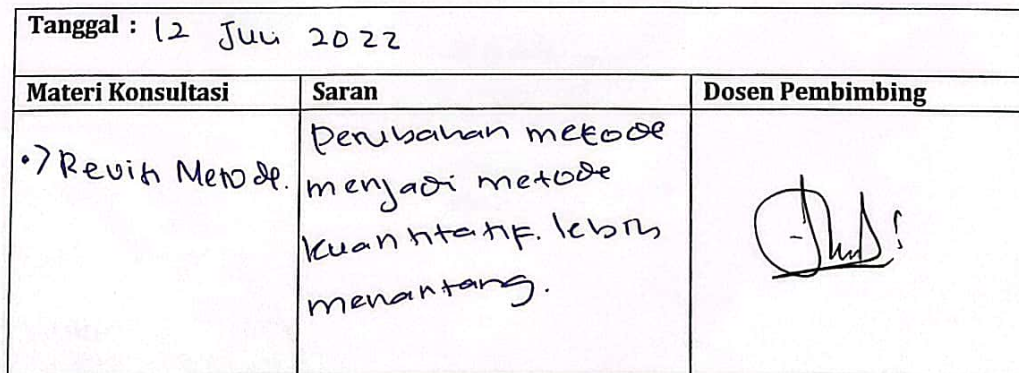 Tanggal : 12 Juli 2022
Materi Konsultasi
Saran
Dosen Pembimbing
•> Revisi Metode.
Perubahan metode
menjadi metode
kuantitatif. lebih
menantang.